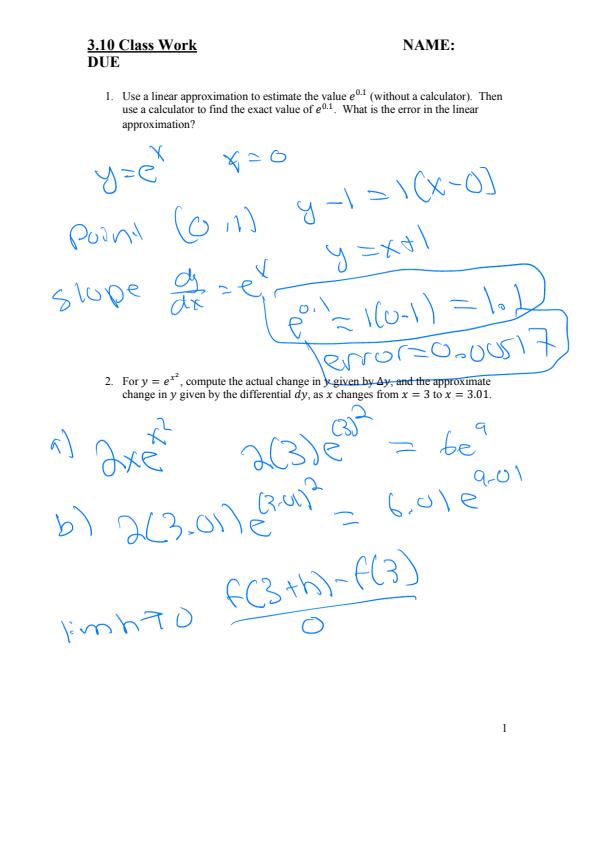 3.10 Class Work NAME:
DUE
1. Use a linear approximation to estimate the value e^0.1 (without a calculator). Then
use a calculator to find the exact value of e^0.1. What is the error in the linear
approximation?
y=e^x x=0
y-1=1(x-0)
point (0,1)
y=x+1
slope dy/dx = e^x
e^0.1 ≈ 1(0.1) = 1.1
error=0.00517
2. For y = e^x², compute the actual change in y given by Δy, and the approximate
change in y given by the differential dy, as x changes from x = 3 to x = 3.01.
a) 2xe^x² 2(3)e^(3)² = 6e^9
b) 2(3.01)e^(3.01)² = 6.01e^9.01
f(3+h)-f(3)
lim h→0
0
1